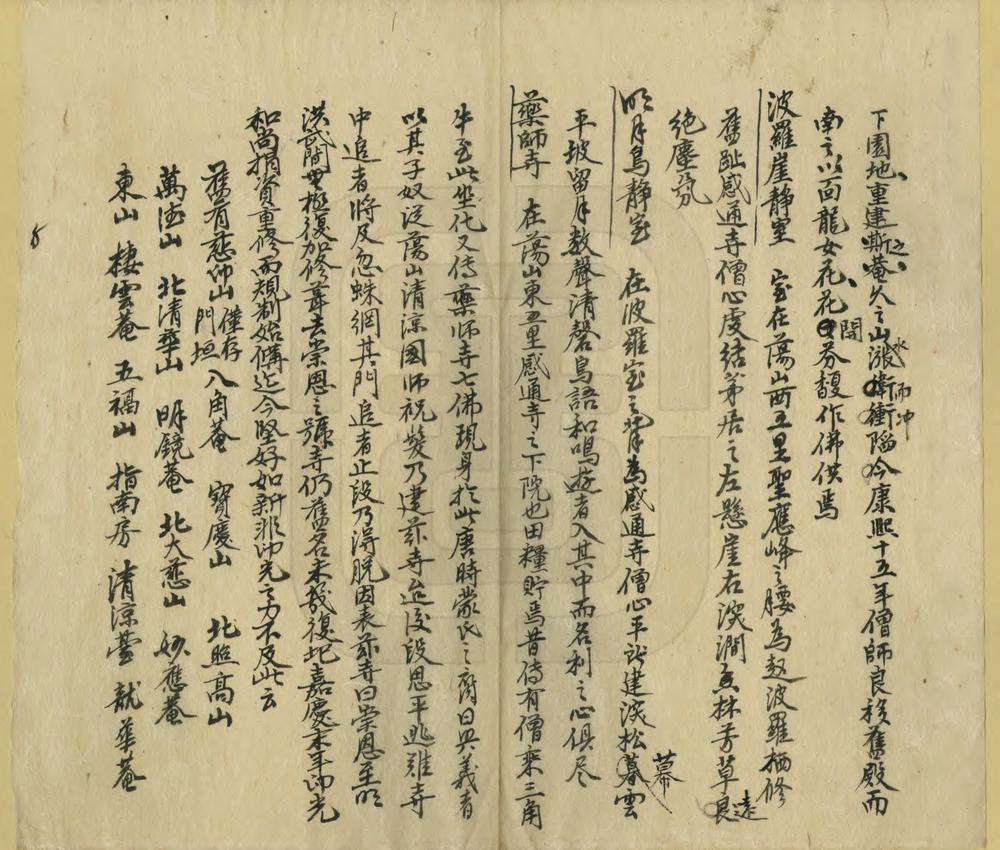 下園地重建斯菴久之山水漲而冲衝陷今康熙十五年僧師良移舊殿而
南之以面龍女花花開芬馥作佛供焉
波羅崖靜室 室在蕩山西五里聖應峰之腰為趙波羅栖修
舊趾感通寺僧心虔結茅居之左懸崖右深澗長林芳草遠
絕塵氛
明月島靜室 在波羅室之背為感通寺僧心平所建深松幕雲
平坡留月数聲清磬鳥語和鳴遊者入其中而名利之心俱尽
藥師寺 在蕩山東五里感通寺之下院也田糧貯焉昔傳有僧乘三角
牛至此坐化又傳藥師寺七佛現身於此唐時蒙氏之裔曰興義者
以其子奴從蕩山清涼國師祝髮乃建茲寺迨後段思平逃難寺
中追者將及忽蛛網其門追者止段乃得脱因表茲寺曰崇恩至明
洪武間無極復加修葺去崇恩之號寺仍舊名未幾復圮嘉慶末年印光
和尚捐資重修而規制始備迄今堅好如新非印光之力不及此云
舊有慈仰山僅存門垣 八角菴 寶慶山 北照高山
萬德山 北清華山 明鏡菴 北大慈山 妙應菴
東山 棲雲菴 五福山 指南房 清涼臺 龍華菴